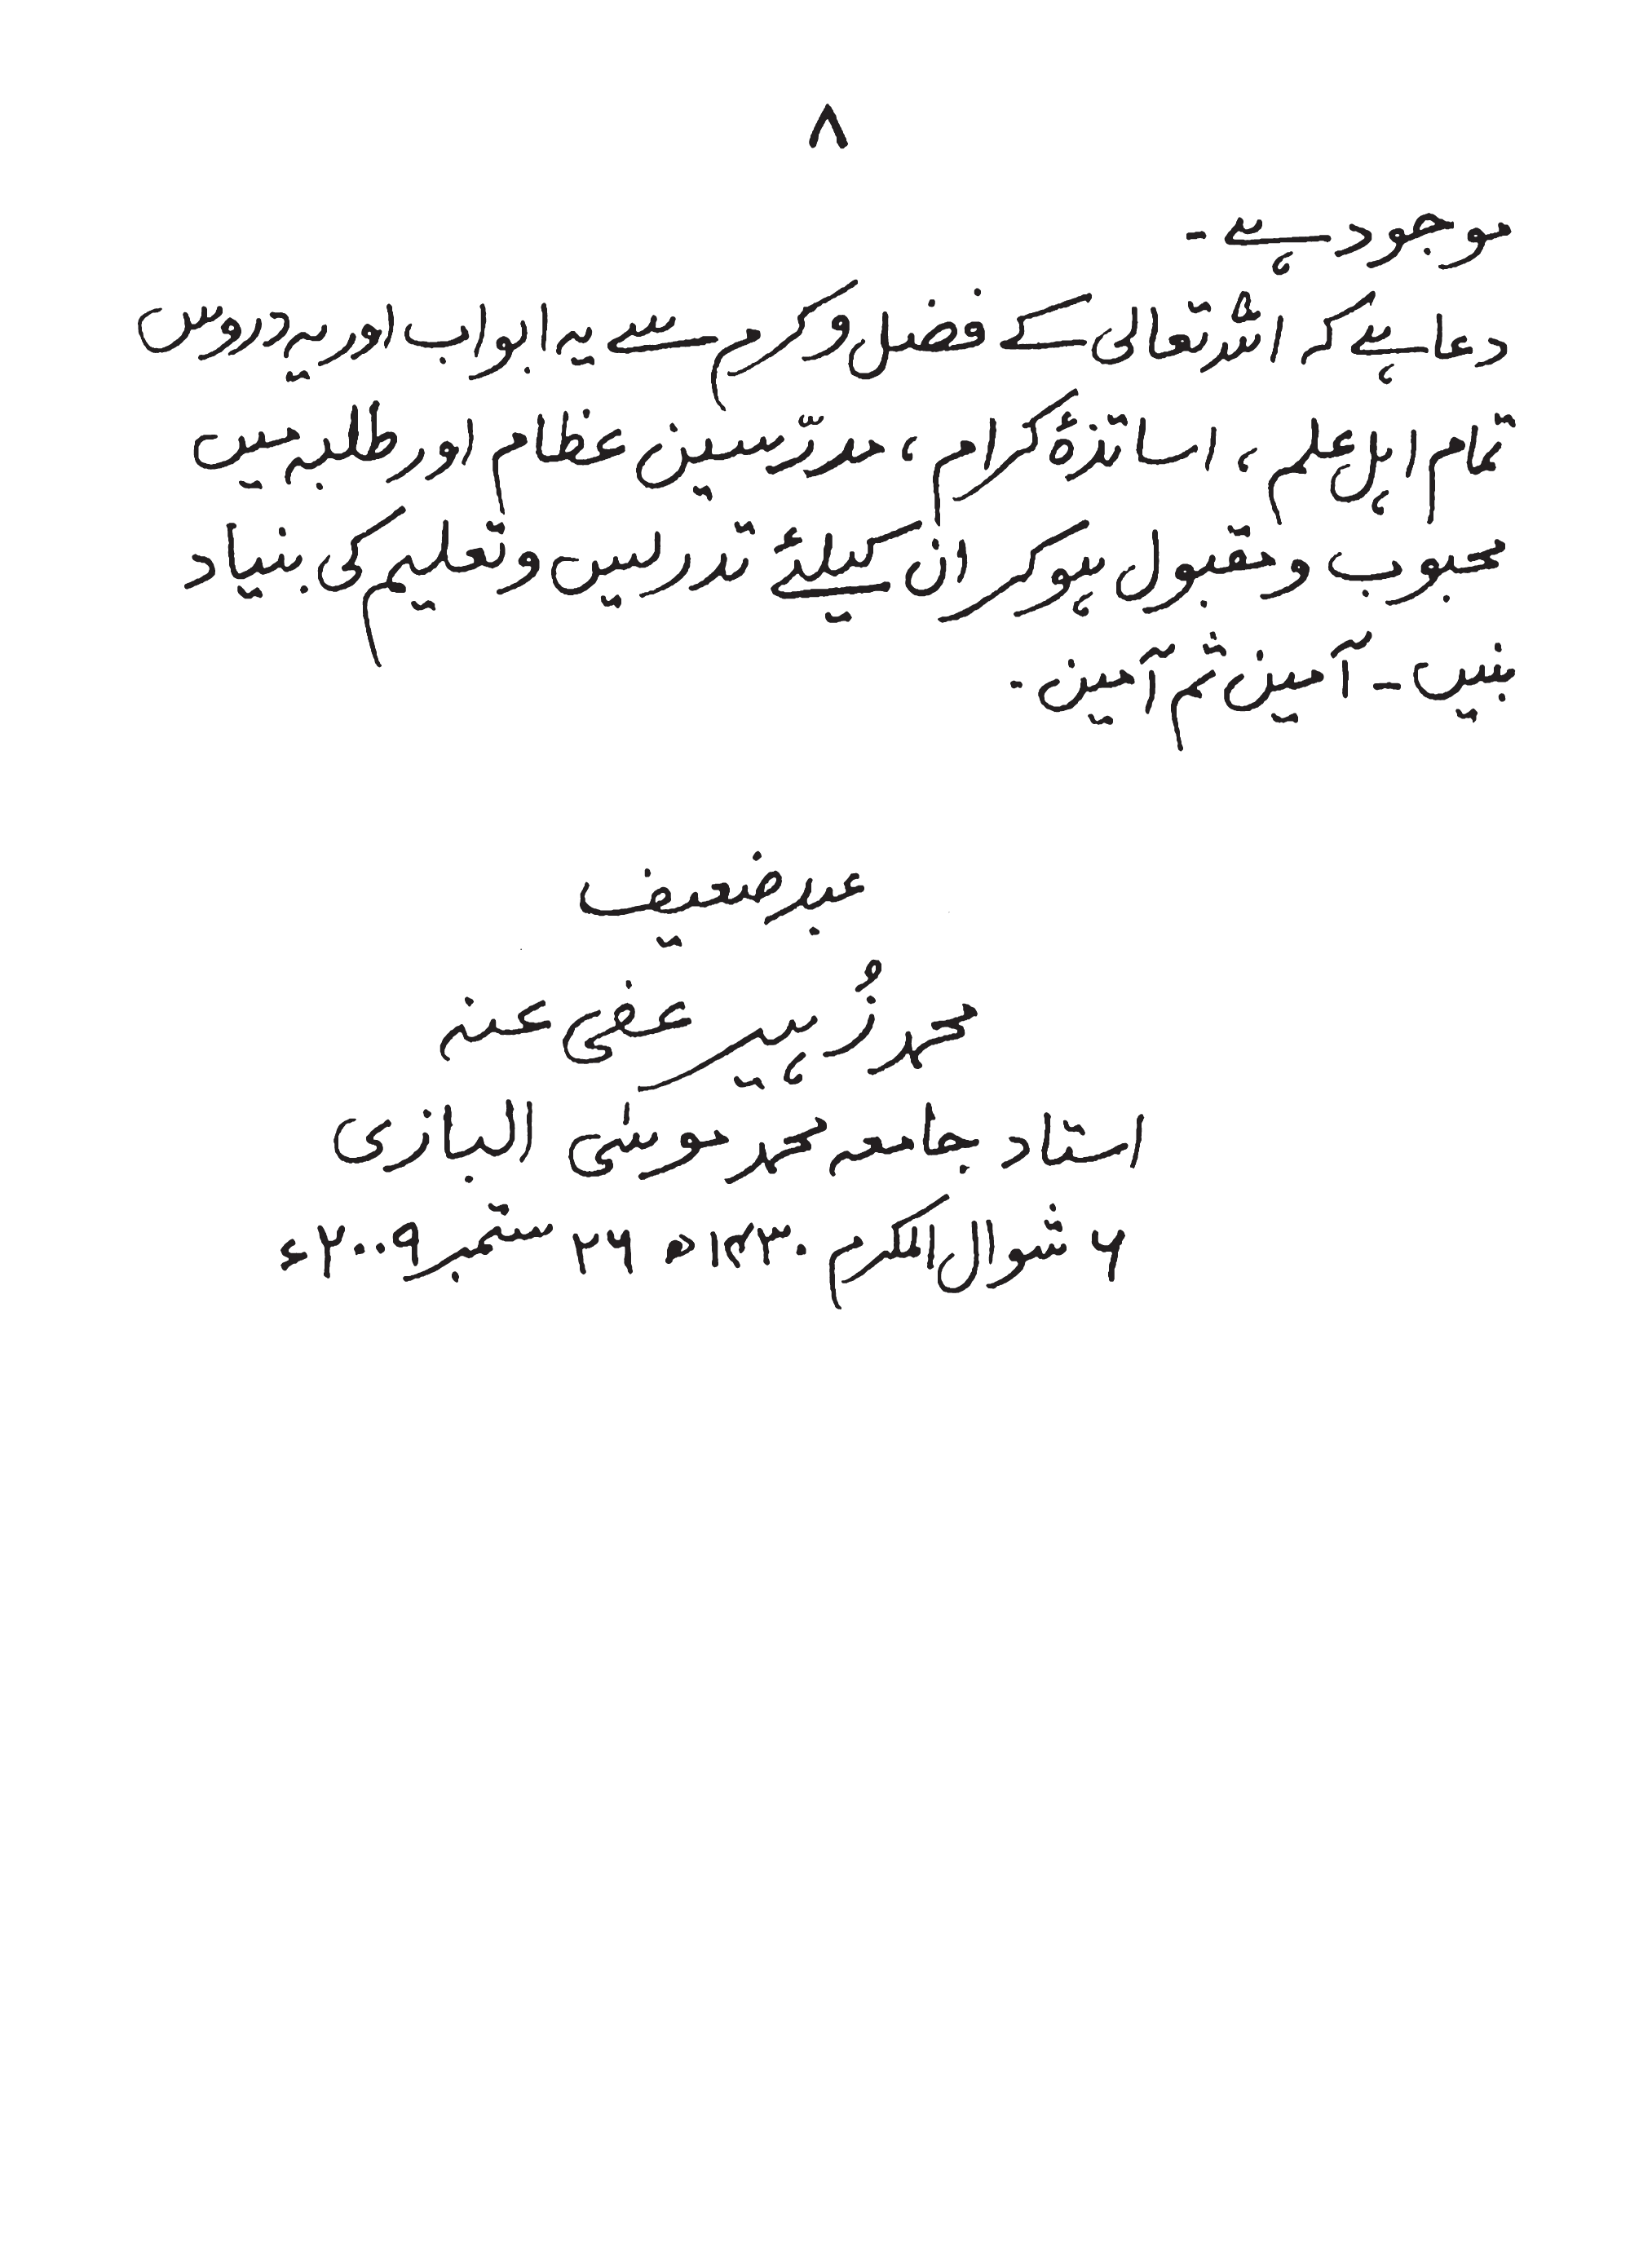 ۸
موجود ہے ۔
دعا ہے کہ اللہ تعالی کے فضل و کرم سے یہ ابواب اور یہ دروس
تمام اہلِ علم ، اساتذۂ کرام ، مدرّسین عظام اور طلبہ میں
محبوب و مقبول ہوکر ان کیلئے تدریس و تعلیم کی بنیاد
بنیں ۔ آمین ثم آمین ۔
عبد ضعیف
محمد زُہیر عفی عنہ
استاد جامعہ محمد موسٰی البازی
۶ شوال المکرم ۱۴۳۰ھ ۲۶ ستمبر ۲۰۰۹ء